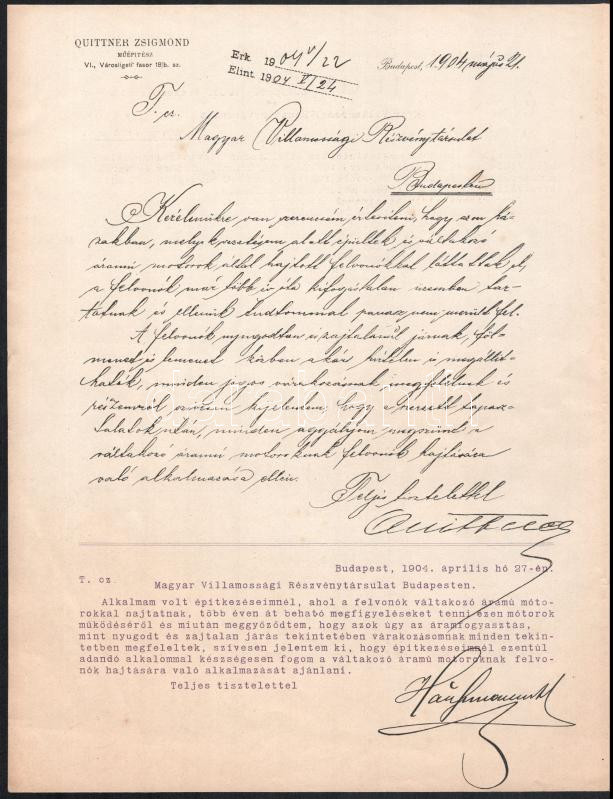 QUITTNER ZSIGMOND
MŰÉPITÉSZ
VI., Városligeti fasor 18/b. sz.
Erk. 1904 V/22
Elint. 1904 V/24
Budapest, 1904 május 21.
T. cz.
Magyar Villamossági Részvénytársulat
Budapesten
Kérelmükre van szerencsém értesíteni, hogy azon há-
zakban, melyek vezetésem alatt épültek és váltakozó
áramú motorok által hajtott felvonókkal láttattak el,
a felvonók már több év óta kifogástalan üzemben tar-
tatnak és ellenük tudtommal panasz nem merült fel.
A felvonók nyugodtan és zajtalanúl járnak, föl-
menet és lemenet közben akár hirtelen is megállít-
hatók, minden jogos várakozásnak megfelelnek és
részemről szívesen kijelentem, hogy a szerzett tapasz-
talatok után, minden aggályom megszünt a
váltakozó áramú motoroknak felvonók hajtására
való alkalmazása ellen.
Teljes tisztelettel
Quittner
Budapest, 1904. április hó 27-én.
T. cz
Magyar Villamossági Részvénytársulat Budapesten.
Alkalmam volt építkezéseimnél, ahol a felvonók váltakozó áramú móto-
rokkal hajtatnak, több éven át beható megfigyeléseket tenni ezen mótorok
működéséről és miután meggyőződtem, hogy azok úgy az áramfogyasztás,
mint nyugodt és zajtalan járás tekintetében várakozásomnak minden tekin-
tetben megfeleltek, szívesen jelentem ki, hogy építkezéseimnél ezentúl
adandó alkalommal készségesen fogom a váltakozó áramú mótoroknak felvo-
nók hajtására való alkalmazását ajánlani.
Teljes tisztelettel